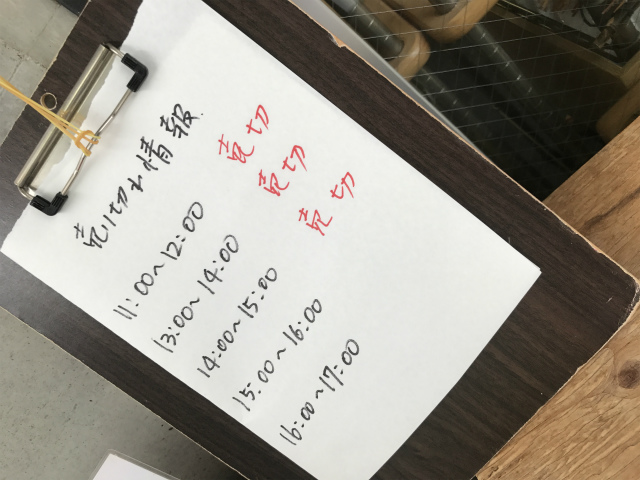 売り切れ情報
11:00〜12:00 売切
13:00〜14:00 売切
14:00〜15:00 売切
15:00〜16:00
16:00〜17:00